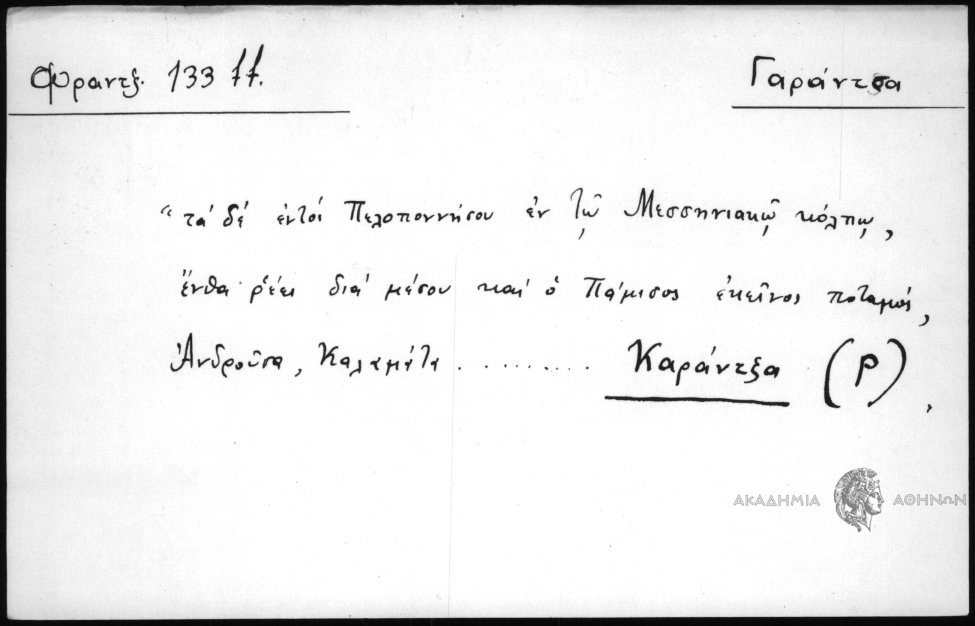 Φραντζ. 133 ff.
Γαράντζα
“ τὰ δὲ ἐντὸς Πελοποννήσου ἐν τῷ Μεσσηνιακῷ κόλπῳ,
ἔνθα ῥέει διὰ μέσου καὶ ὁ Πάμισος ἐκεῖνος ποταμός,
Ἀνδροῦσα, Καλαμάτα .......... Καράντζα (P),
ΑΚΑΔΗΜΙΑ ΑΘΗΝΩΝ